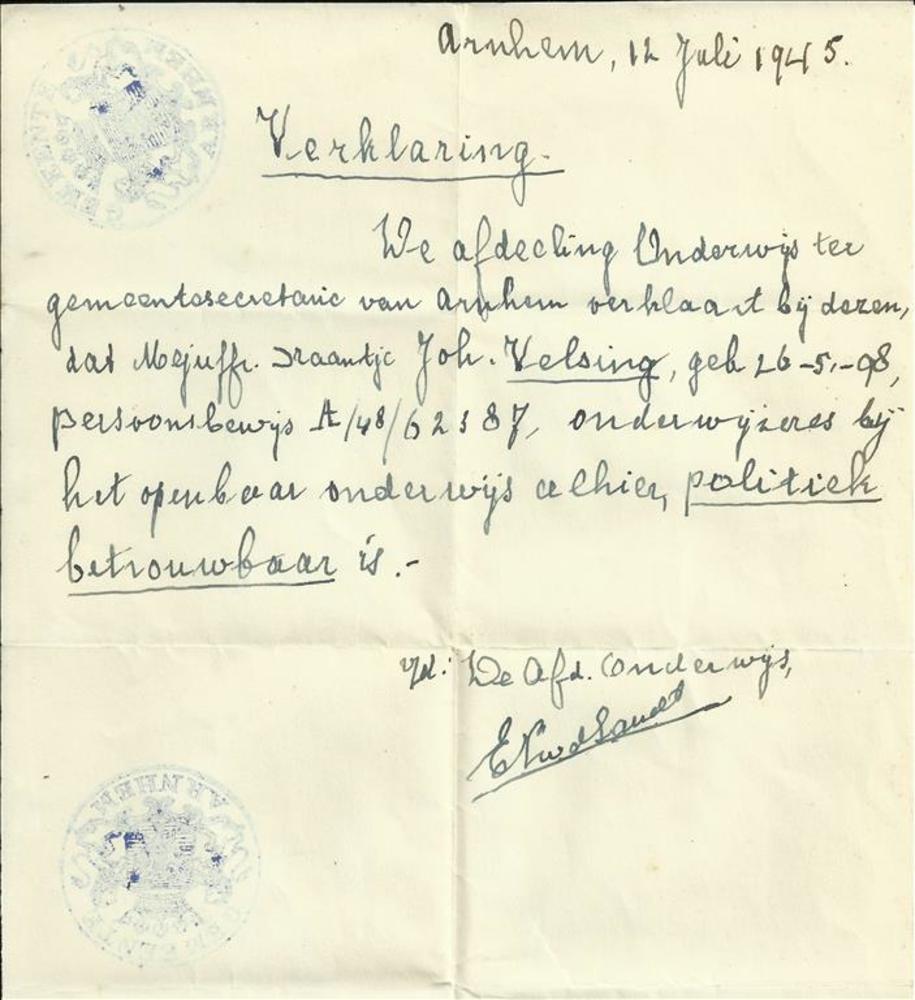 Arnhem, 12 Juli 1945.
GEMEENTE ARNHEM
Verklaring.
De afdeeling Onderwijs ter
gemeentesecretarie van Arnhem verklaart bij dezen,
dat Mejuffr. Joh. Velsing, geb 26-5.-98,
persoonsbewijs A/48/62387, onderwijzeres bij
het openbaar onderwijs alhier, politiek
betrouwbaar is.-
De Afd. Onderwijs,
GEMEENTE ARNHEM